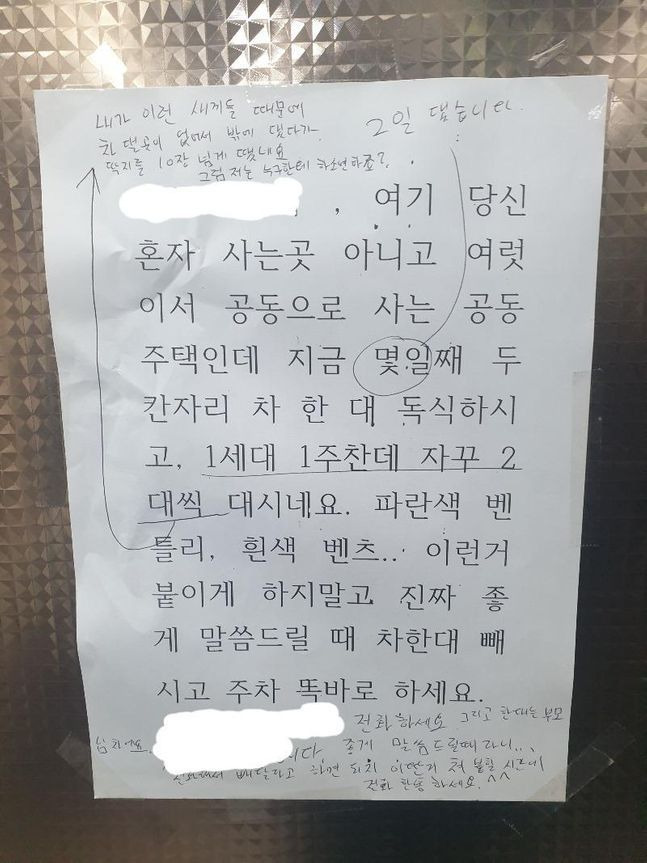 내가 이런 새끼들 때문에
차 댈곳이 없어서 밖에 댔다가
딱지를 10장 넘게 뗐네요
그럼 저는 누구한테 하소연하죠?
2일 댔습니다.
, 여기 당신
혼자 사는곳 아니고 여럿
이서 공동으로 사는 공동
주택인데 지금 몇일째 두
칸자리 차 한 대 독식하시
고, 1세대 1주찬데 자꾸 2
대씩 대시네요. 파란색 벤
틀리, 흰색 벤츠.. 이런거
붙이게 하지말고 진짜 좋
게 말씀드릴 때 차한대 빼
시고 주차 똑바로 하세요.
전화하세요 그리고 한대는 부모
님 차에요.
니다 좋게 말씀드릴때라니...
빼달라고 하면 되지 이딴거 쳐 붙힐 시간에
전화 한통 하세요.^^